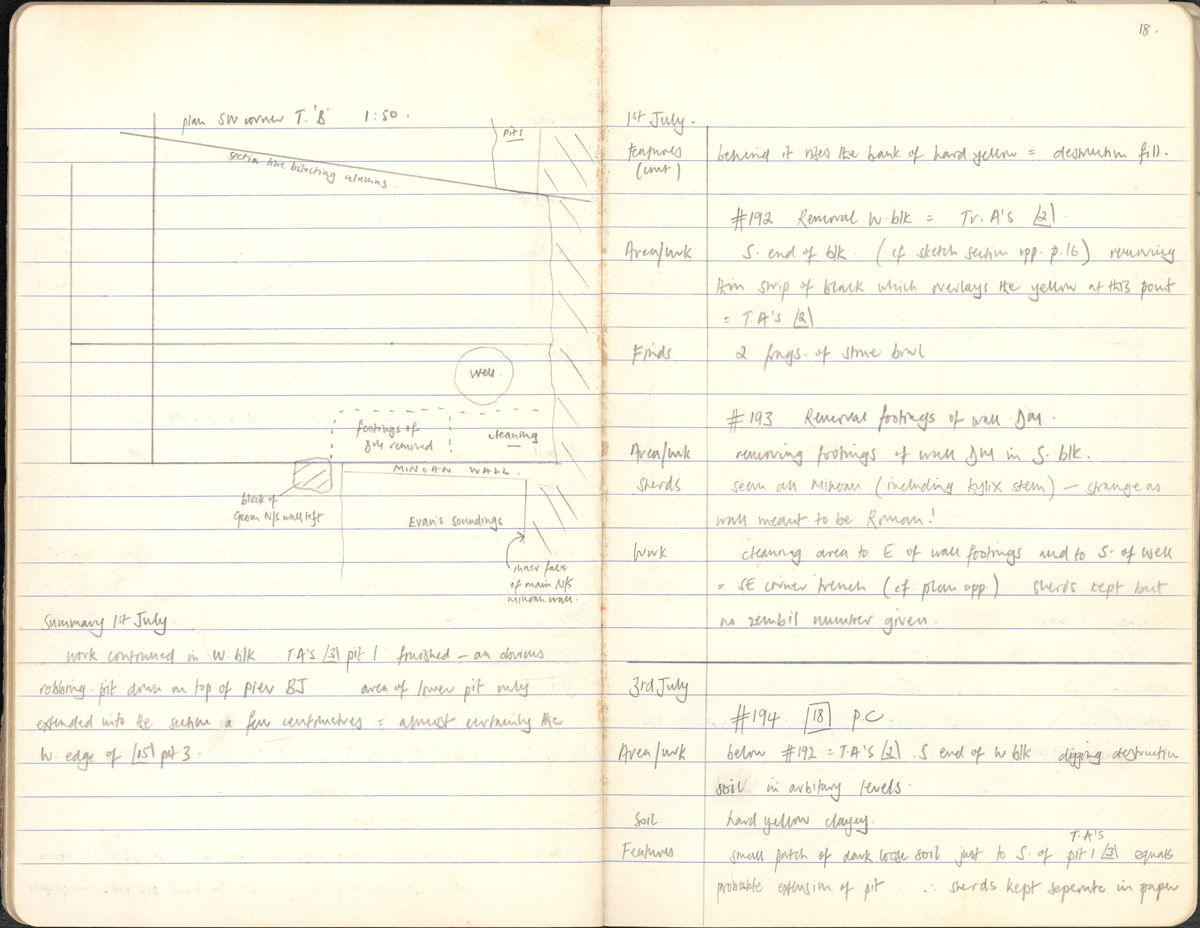 plan SW corner T.'B' 1:50.
pit 1
section line bisecting columns.
Well.
footings of
DM removed
cleaning
MINOAN WALL.
block of
Geom N/S wall left
Evan's soundings
inner face
of main N/S
minoan wall.
Summary 1st July.
work continued in W. blk TA's [3] pit 1 finished – an obvious
robbing-pit down on top of pier BJ area of lower pit only
extended into the section a few centimetres = almost certainly the
W. edge of [15] pit 3.
18.
1st July.
features
(cont)
behind it rises the bank of hard yellow = destruction fill.
#192 Removal W. blk = Tr. A's [2].
Area/wk S. end of blk. (cf sketch section opp. p.16) removing
thin strip of black which overlays the yellow at this point
= T.A's [2]
Finds 2 frags. of stone bowl
#193 Removal footings of wall DM.
Area/wk removing footings of wall DM in S. blk.
Sherds seem all Minoan (including kylix stem) – strange as
wall meant to be Roman!
Work. cleaning area to E of wall footings and to S. of well
= SE corner trench (cf. plan opp.) sherds kept but
no zembil number given.
3rd July
#194. [18] P.C.
Area/wk below #192 = T.A's [2]. S end of W blk digging destruction
soil in arbitary levels.
Soil. hard yellow clayey.
T.A's
Features small patch of dark loose soil just to S. of pit 1 [3] equals
probable extension of pit ∴ sherds kept seperate in paper